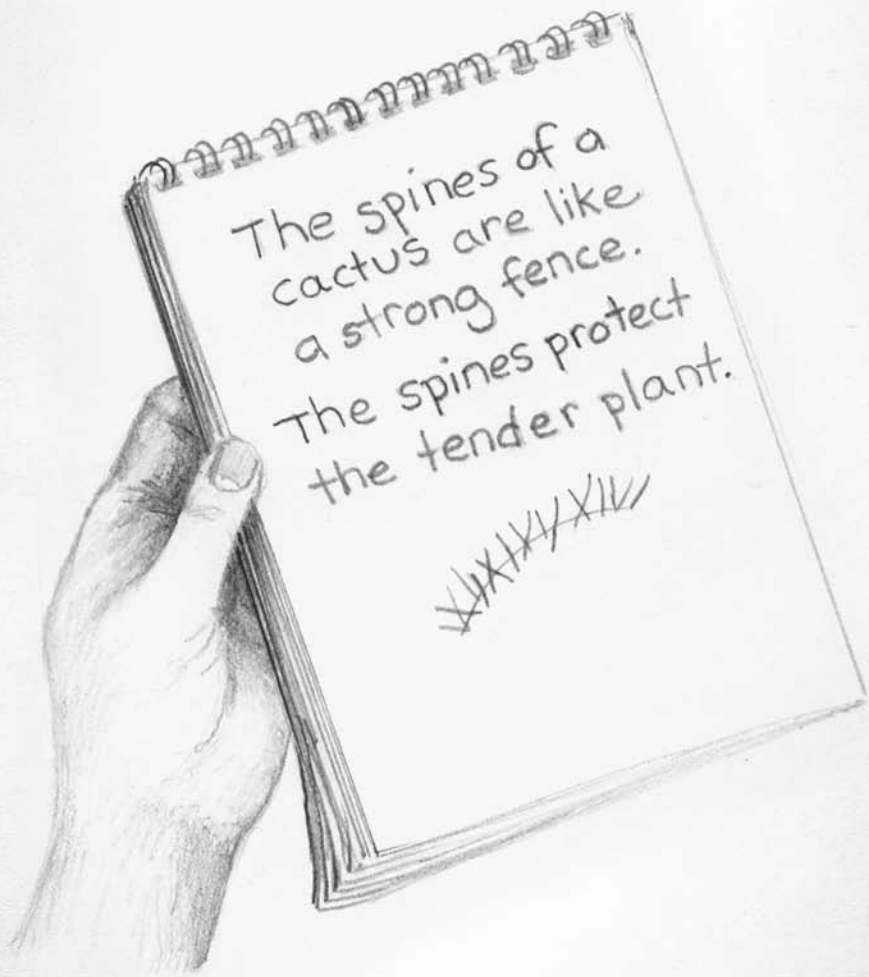 The spines of a
cactus are like
a strong fence.
The spines protect
the tender plant.